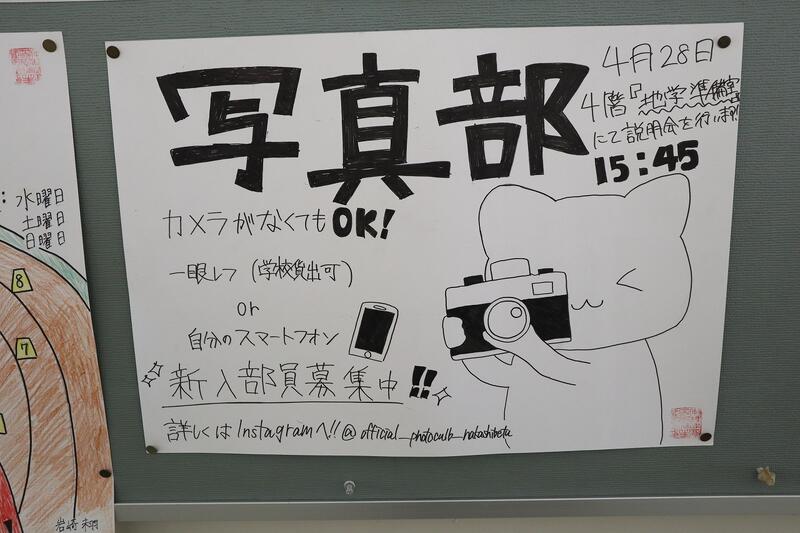 写真部
4月28日
4階『地学準備室』
にて説明会を行います!!
15:45
カメラがなくてもOK!
一眼レフ (学校貸出可)
or
自分のスマートフォン
新入部員募集中!!
詳しくはInstagramへ!!@official_photoculb_nakashibeta
水曜日
土曜日
日曜日
8
7
岩崎